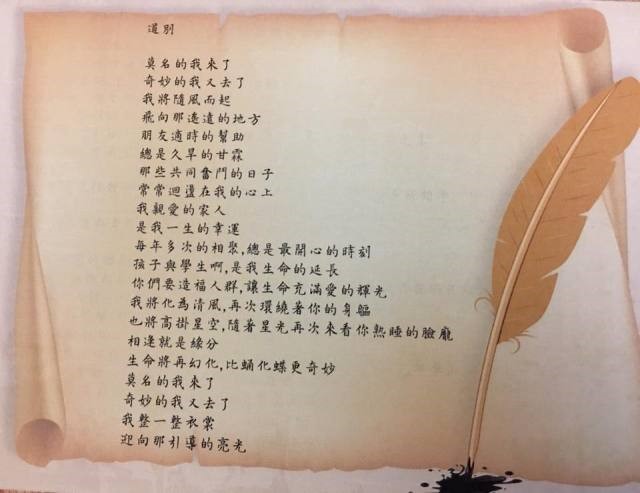 道別
莫名的我來了
奇妙的我又去了
我將隨風而起
飛向那遙遠的地方
朋友適時的幫助
總是久旱的甘霖
那些共同奮鬥的日子
常常迴盪在我的心上
我親愛的家人
是我一生的幸運
每年多次的相聚,總是最開心的時刻
孩子與學生啊,是我生命的延長
你們要造福人群,讓生命充滿愛的輝光
我將化為清風,再次環繞著你的身軀
也將高掛星空,隨著星光再次來看你熟睡的臉龐
相逢就是緣分
生命將再幻化,比蛹化蝶更奇妙
莫名的我來了
奇妙的我又去了
我整一整衣裳
迎向那引導的亮光